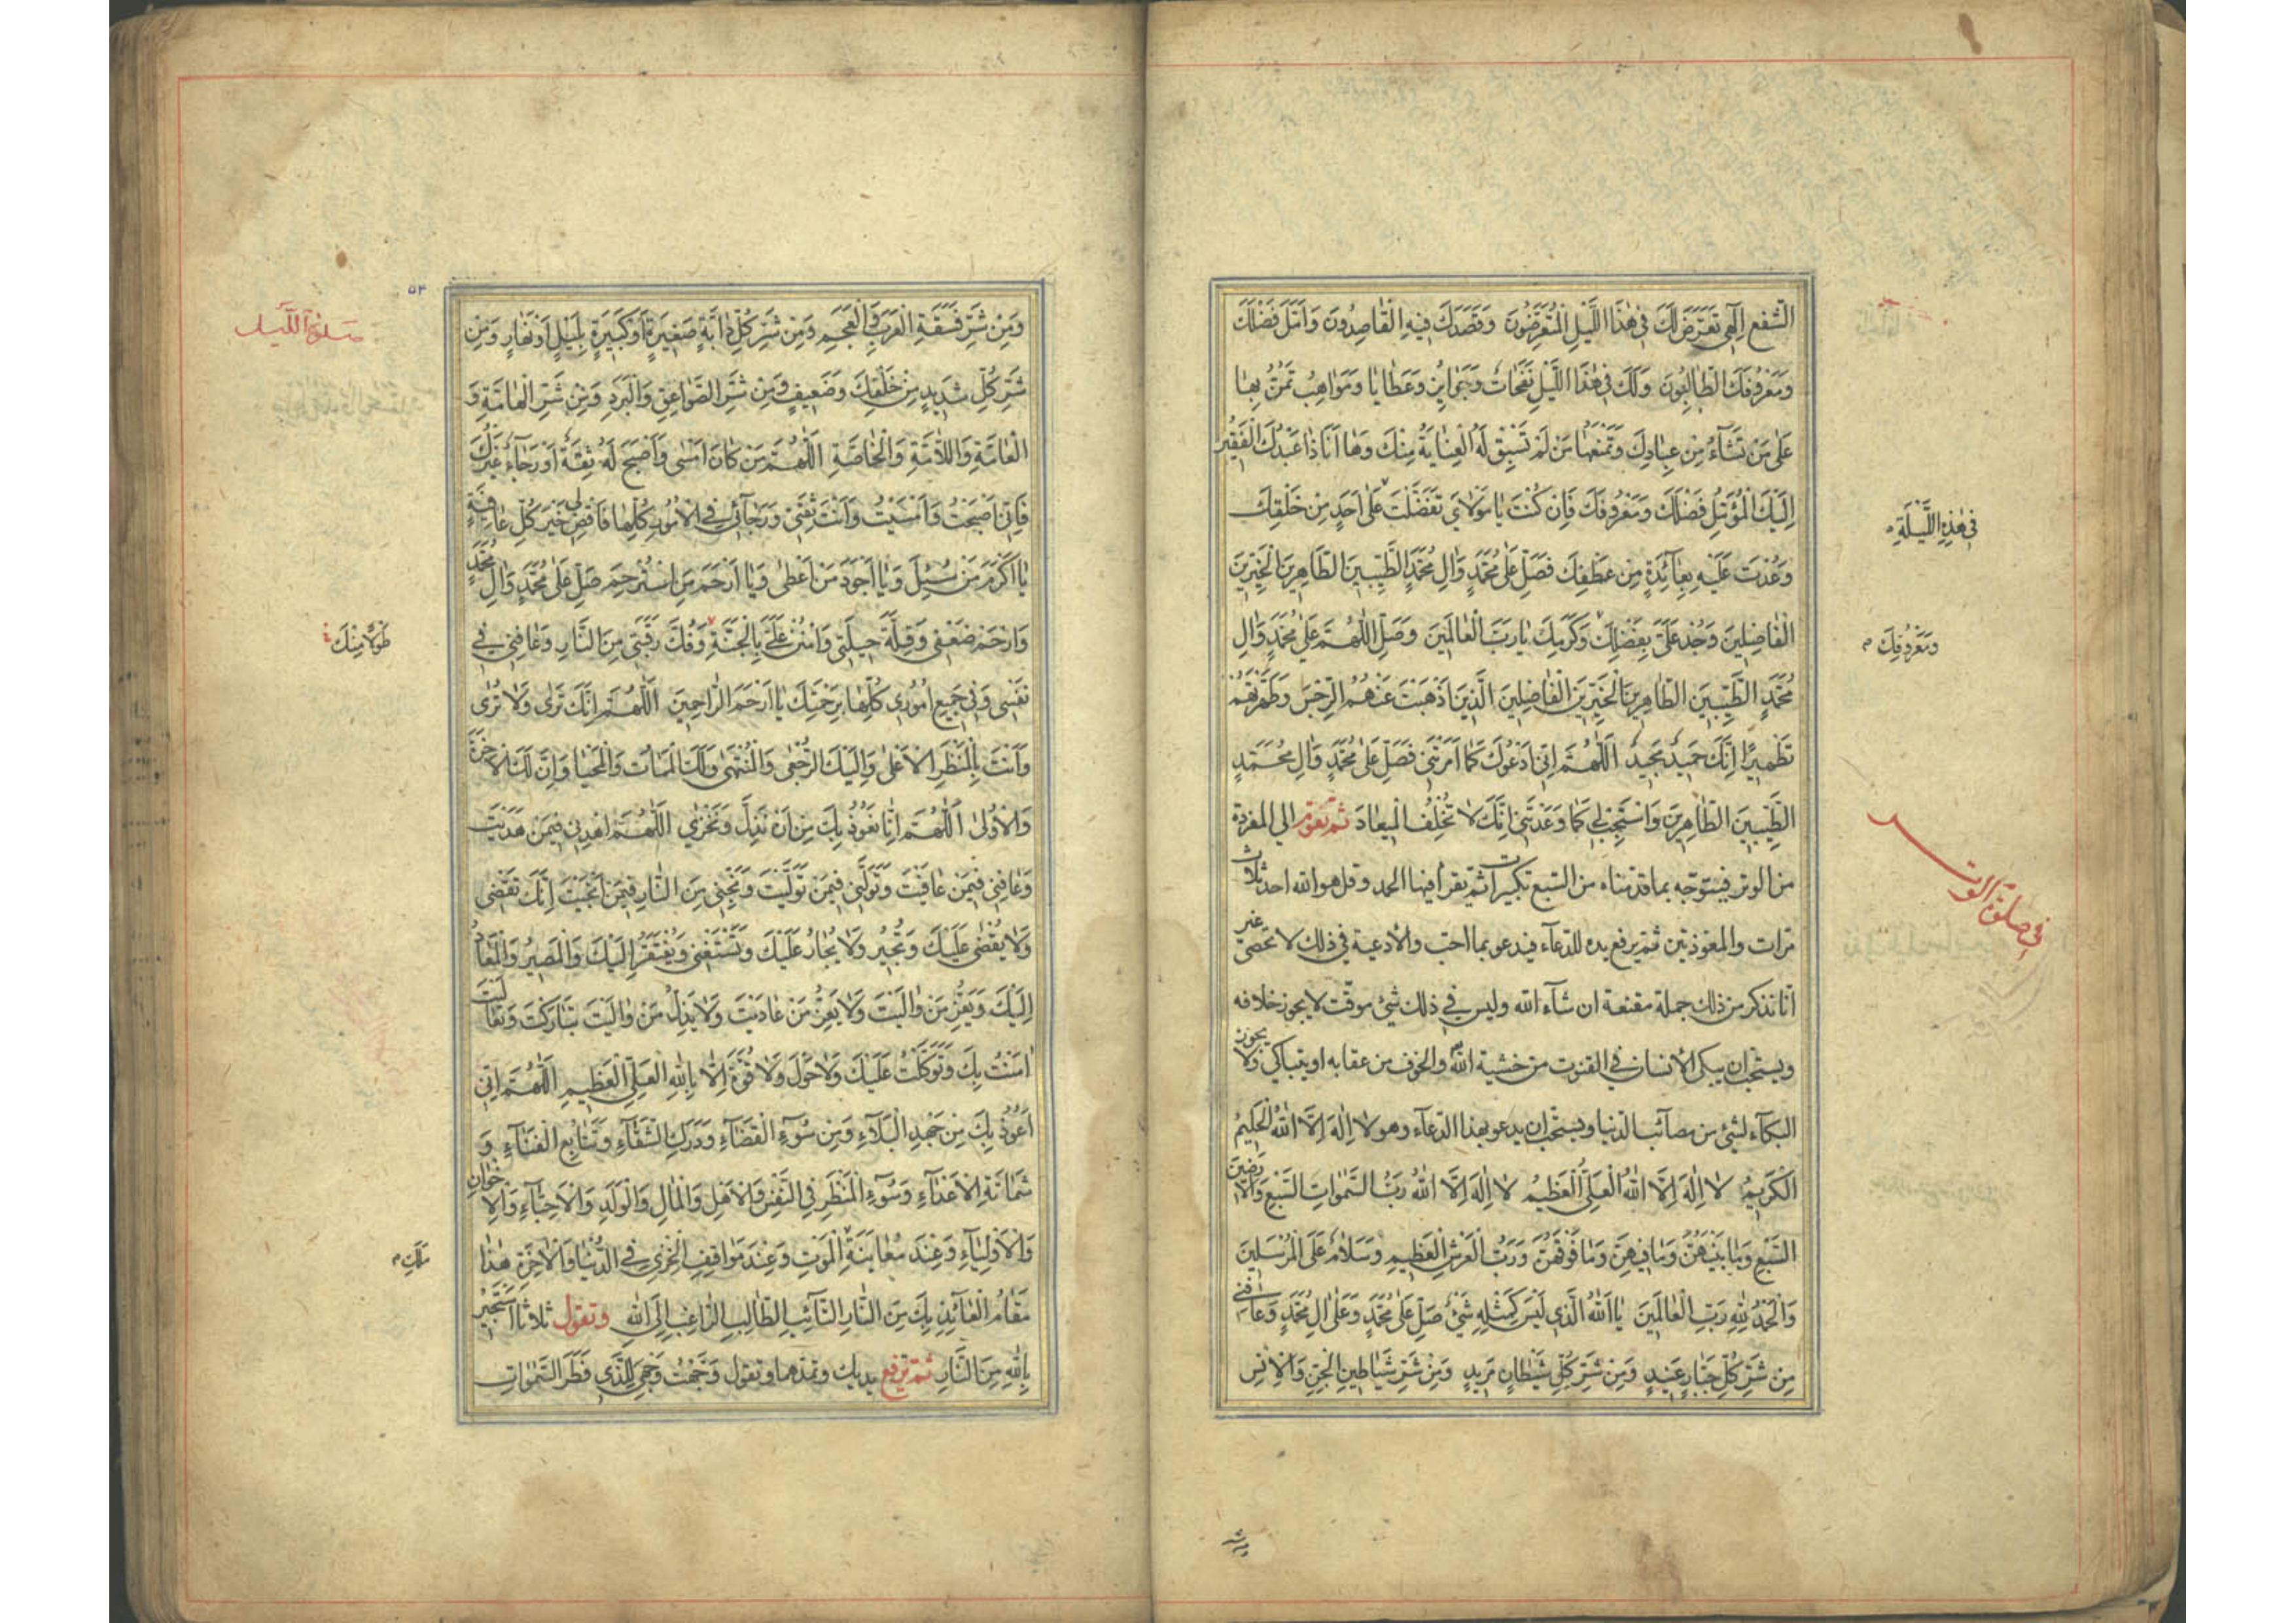 الشفع اِلٰهي تَعَرَّضَ لَكَ في هٰذَا اللَّيْلِ الْمُتَعَرِّضُونَ وَقَصَدَكَ فيهِ الْقاصِدُونَ وَاَمَّلَ فَضْلَكَ
وَمَعْرُوفَكَ الطّالِبُونَ وَلَكَ في هٰذَا اللَّيْلِ نَفَحاتٌ وَجَوايِزُ وَعَطايا وَمَواهِبُ تَمُنُّ بِها
عَلىٰ مَنْ تَشآءُ مِنْ عِبادِكَ وَتَمْنَعُها مَنْ لَمْ تَسْبِقْ لَهُ الْعِنايَةُ مِنْكَ وَها اَنَا ذا عَبْدُكَ الْفَقيرُ
اِلَيْكَ الْمُؤَمِّلُ فَضْلَكَ وَمَعْرُوفَكَ فَاِنْ كُنْتَ يا مَوْلايَ تَفَضَّلْتَ عَلىٰ اَحَدٍ مِنْ خَلْقِكَ
في هٰذِهِ اللَّيْلَةِ
وَعُدْتَ عَلَيْهِ بِعآئِدَةٍ مِنْ عَطْفِكَ فَصَلِّ عَلىٰ مُحَمَّدٍ وَالِ مُحَمَّدٍ الطَّيِّبينَ الطّاهِرينَ الْخَيِّرينَ
الْفاضِلينَ وَجُدْ عَلَيَّ بِفَضْلِكَ وَكَرَمِكَ يا رَبَّ الْعالَمينَ وَصَلِّ اللّٰهُمَّ عَلىٰ مُحَمَّدٍ وَالِ
وَمَعْرُوفِكَ
مُحَمَّدٍ الطَّيِّبينَ الطّاهِرينَ الْخَيِّرينَ الْفاضِلينَ الَّذينَ اَذْهَبْتَ عَنْهُمُ الرِّجْسَ وَطَهَّرْتَهُمْ
تَطْهيرًا اِنَّكَ حَميدٌ مَجيدٌ اَللّٰهُمَّ اِنّي اَدْعُوكَ كَما اَمَرْتَني فَصَلِّ عَلىٰ مُحَمَّدٍ وَالِ مُحَمَّدٍ
الطَّيِّبينَ الطّاهِرينَ وَاسْتَجِبْ لي كَما وَعَدْتَني اِنَّكَ لا تُخْلِفُ الْميعادَ ثم تقوم الى المفردة
في صلوة الوتر
من الوتر فيتوجّه بما قدمناه من السّبع تكبيرات ثم يقرأ فيها الحمد وقل هو الله احد ثلاث
مرّات والمعوّذتين ثم يرفع يده للدعآء فيدعو بما احبّ والأدعية في ذلك لا تحصى غير
انّا نذكر من ذلك جملة مقنعة ان شآء الله وليس في ذلك شئ موقّت لا يجوز خلافه
ويستحب ان يبكي الأنسان في القنوت من خشية الله والخوف من عقابه او يتباكى ولا يجوز
البكآء لشئ من مصآئب الدنيا ويستحب ان يدعو بهذا الدعآء وهو لا اِلٰهَ اِلَّا اللهُ الْحَكيمُ
الْكَريمُ لا اِلٰهَ اِلَّا اللهُ الْعَلِيُّ الْعَظيمُ لا اِلٰهَ اِلَّا اللهُ رَبُّ السَّمٰواتِ السَّبْعِ وَالْاَرَضينَ
السَّبْعِ وَما بَيْنَهُنَّ وَما فيهِنَّ وَما فَوْقَهُنَّ وَرَبُّ الْعَرْشِ الْعَظيمِ وَسَلامٌ عَلَى الْمُرْسَلينَ
وَالْحَمْدُ لِلّٰهِ رَبِّ الْعالَمينَ يا اَللهُ الَّذي لَيْسَ كَمِثْلِهِ شَيْءٌ صَلِّ عَلىٰ مُحَمَّدٍ وَعَلىٰ الِ مُحَمَّدٍ وَعافِني
مِنْ شَرِّ كُلِّ جَبّارٍ عَنيدٍ وَمِنْ شَرِّ كُلِّ شَيْطانٍ مَريدٍ وَمِنْ شَرِّ شَياطينِ الْجِنِّ وَالْاِنْسِ
۵۳
صلوة اللّيل
وَمِنْ شَرِّ فَسَقَةِ الْعَرَبِ وَالْعَجَمِ وَمِنْ شَرِّ كُلِّ دابَّةٍ صَغيرَةٍ اَوْ كَبيرَةٍ بِلَيْلٍ اَوْ نَهارٍ وَمِنْ
شَرِّ كُلِّ شَديدٍ مِنْ خَلْقِكَ وَضَعيفٍ وَمِنْ شَرِّ الصَّواعِقِ وَالْبَرَدِ وَمِنْ شَرِّ الْهامَّةِ وَ
الْعامَّةِ وَاللّامَّةِ وَالْخاصَّةِ اَللّٰهُمَّ مَنْ كانَ اَمْسىٰ وَاَصْبَحَ لَهُ ثِقَةٌ اَوْ رَجآءٌ غَيْرُكَ
فَاِنّي اَصْبَحْتُ وَاَمْسَيْتُ وَاَنْتَ ثِقَتي وَرَجآئي في الْاُمُورِ كُلِّها فَاقْضِ لي خَيْرَ كُلِّ عافِيَةٍ
يا اَكْرَمَ مَنْ سُئِلَ وَيا اَجْوَدَ مَنْ اَعْطىٰ وَيا اَرْحَمَ مَنِ اسْتُرْحِمَ صَلِّ عَلىٰ مُحَمَّدٍ وَالِ مُحَمَّدٍ
وَارْحَمْ ضَعْفي وَقِلَّةَ حيلَتي وَامْنُنْ عَلَيَّ بِالْجَنَّةِ وَفُكَّ رَقَبَتي مِنَ النّارِ وَعافِني في
طَوْلًا مِنْكَ
نَفْسي وَفي جَميعِ اُمُوري كُلِّها بِرَحْمَتِكَ يا اَرْحَمَ الرّاحِمينَ اَللّٰهُمَّ اِنَّكَ تَرىٰ وَلا تُرىٰ
وَاَنْتَ بِالْمَنْظَرِ الْاَعْلىٰ وَاِلَيْكَ الرُّجْعىٰ وَالْمُنْتَهىٰ وَلَكَ الْمَماتُ وَالْمَحْيا وَاِنَّ لَكَ لَلْاخِرَةَ
وَالْاُولىٰ اَللّٰهُمَّ اِنّا نَعُوذُ بِكَ مِنْ اَنْ نَذِلَّ وَنَخْزىٰ اَللّٰهُمَّ اهْدِني فيمَنْ هَدَيْتَ
وَعافِني فيمَنْ عافَيْتَ وَتَوَلَّني فيمَنْ تَوَلَّيْتَ وَنَجِّني مِنَ النّارِ فيمَنْ اَنْجَيْتَ اِنَّكَ تَقْضي
وَلا يُقْضىٰ عَلَيْكَ وَتُجيرُ وَلا يُجارُ عَلَيْكَ وَتَسْتَغْني وَيُفْتَقَرُ اِلَيْكَ وَالْمَصيرُ وَالْمَعادُ
اِلَيْكَ وَيَعِزُّ مَنْ والَيْتَ وَلا يَعِزُّ مَنْ عادَيْتَ وَلا يَذِلُّ مَنْ والَيْتَ تَبارَكْتَ وَتَعالَيْتَ
امَنْتُ بِكَ وَتَوَكَّلْتُ عَلَيْكَ وَلا حَوْلَ وَلا قُوَّةَ اِلّا بِاللهِ الْعَلِيِّ الْعَظيمِ اَللّٰهُمَّ اِنّي
اَعُوذُ بِكَ مِنْ جَهْدِ الْبَلآءِ وَمِنْ سُوءِ الْقَضآءِ وَدَرَكِ الشَّقآءِ وَتَتابُعِ الْفَنآءِ وَ
شَماتَةِ الْاَعْدآءِ وَسُوءِ الْمَنْظَرِ فِي النَّفْسِ وَالْاَهْلِ وَالْمالِ وَالْوَلَدِ وَالْاَحِبّآءِ وَالْاِخْوانِ
وَالْاَوْلِيآءِ وَعِنْدَ مُعايَنَةِ الْمَوْتِ وَعِنْدَ مَواقِفِ الْخِزْيِ في الدُّنْيا وَالْاخِرَةِ هٰذا
مَلَكِ
مَقامُ الْعآئِذِ بِكَ مِنَ النّارِ التّآئِبِ الطّالِبِ الرّاغِبِ اِلَى اللهِ وتقول ثلاثا اَسْتَجيرُ
بِاللهِ مِنَ النّارِ ثم ترفع يديك وتمدهما وتقول وَجَّهْتُ وَجْهِيَ لِلَّذي فَطَرَ السَّمٰواتِ